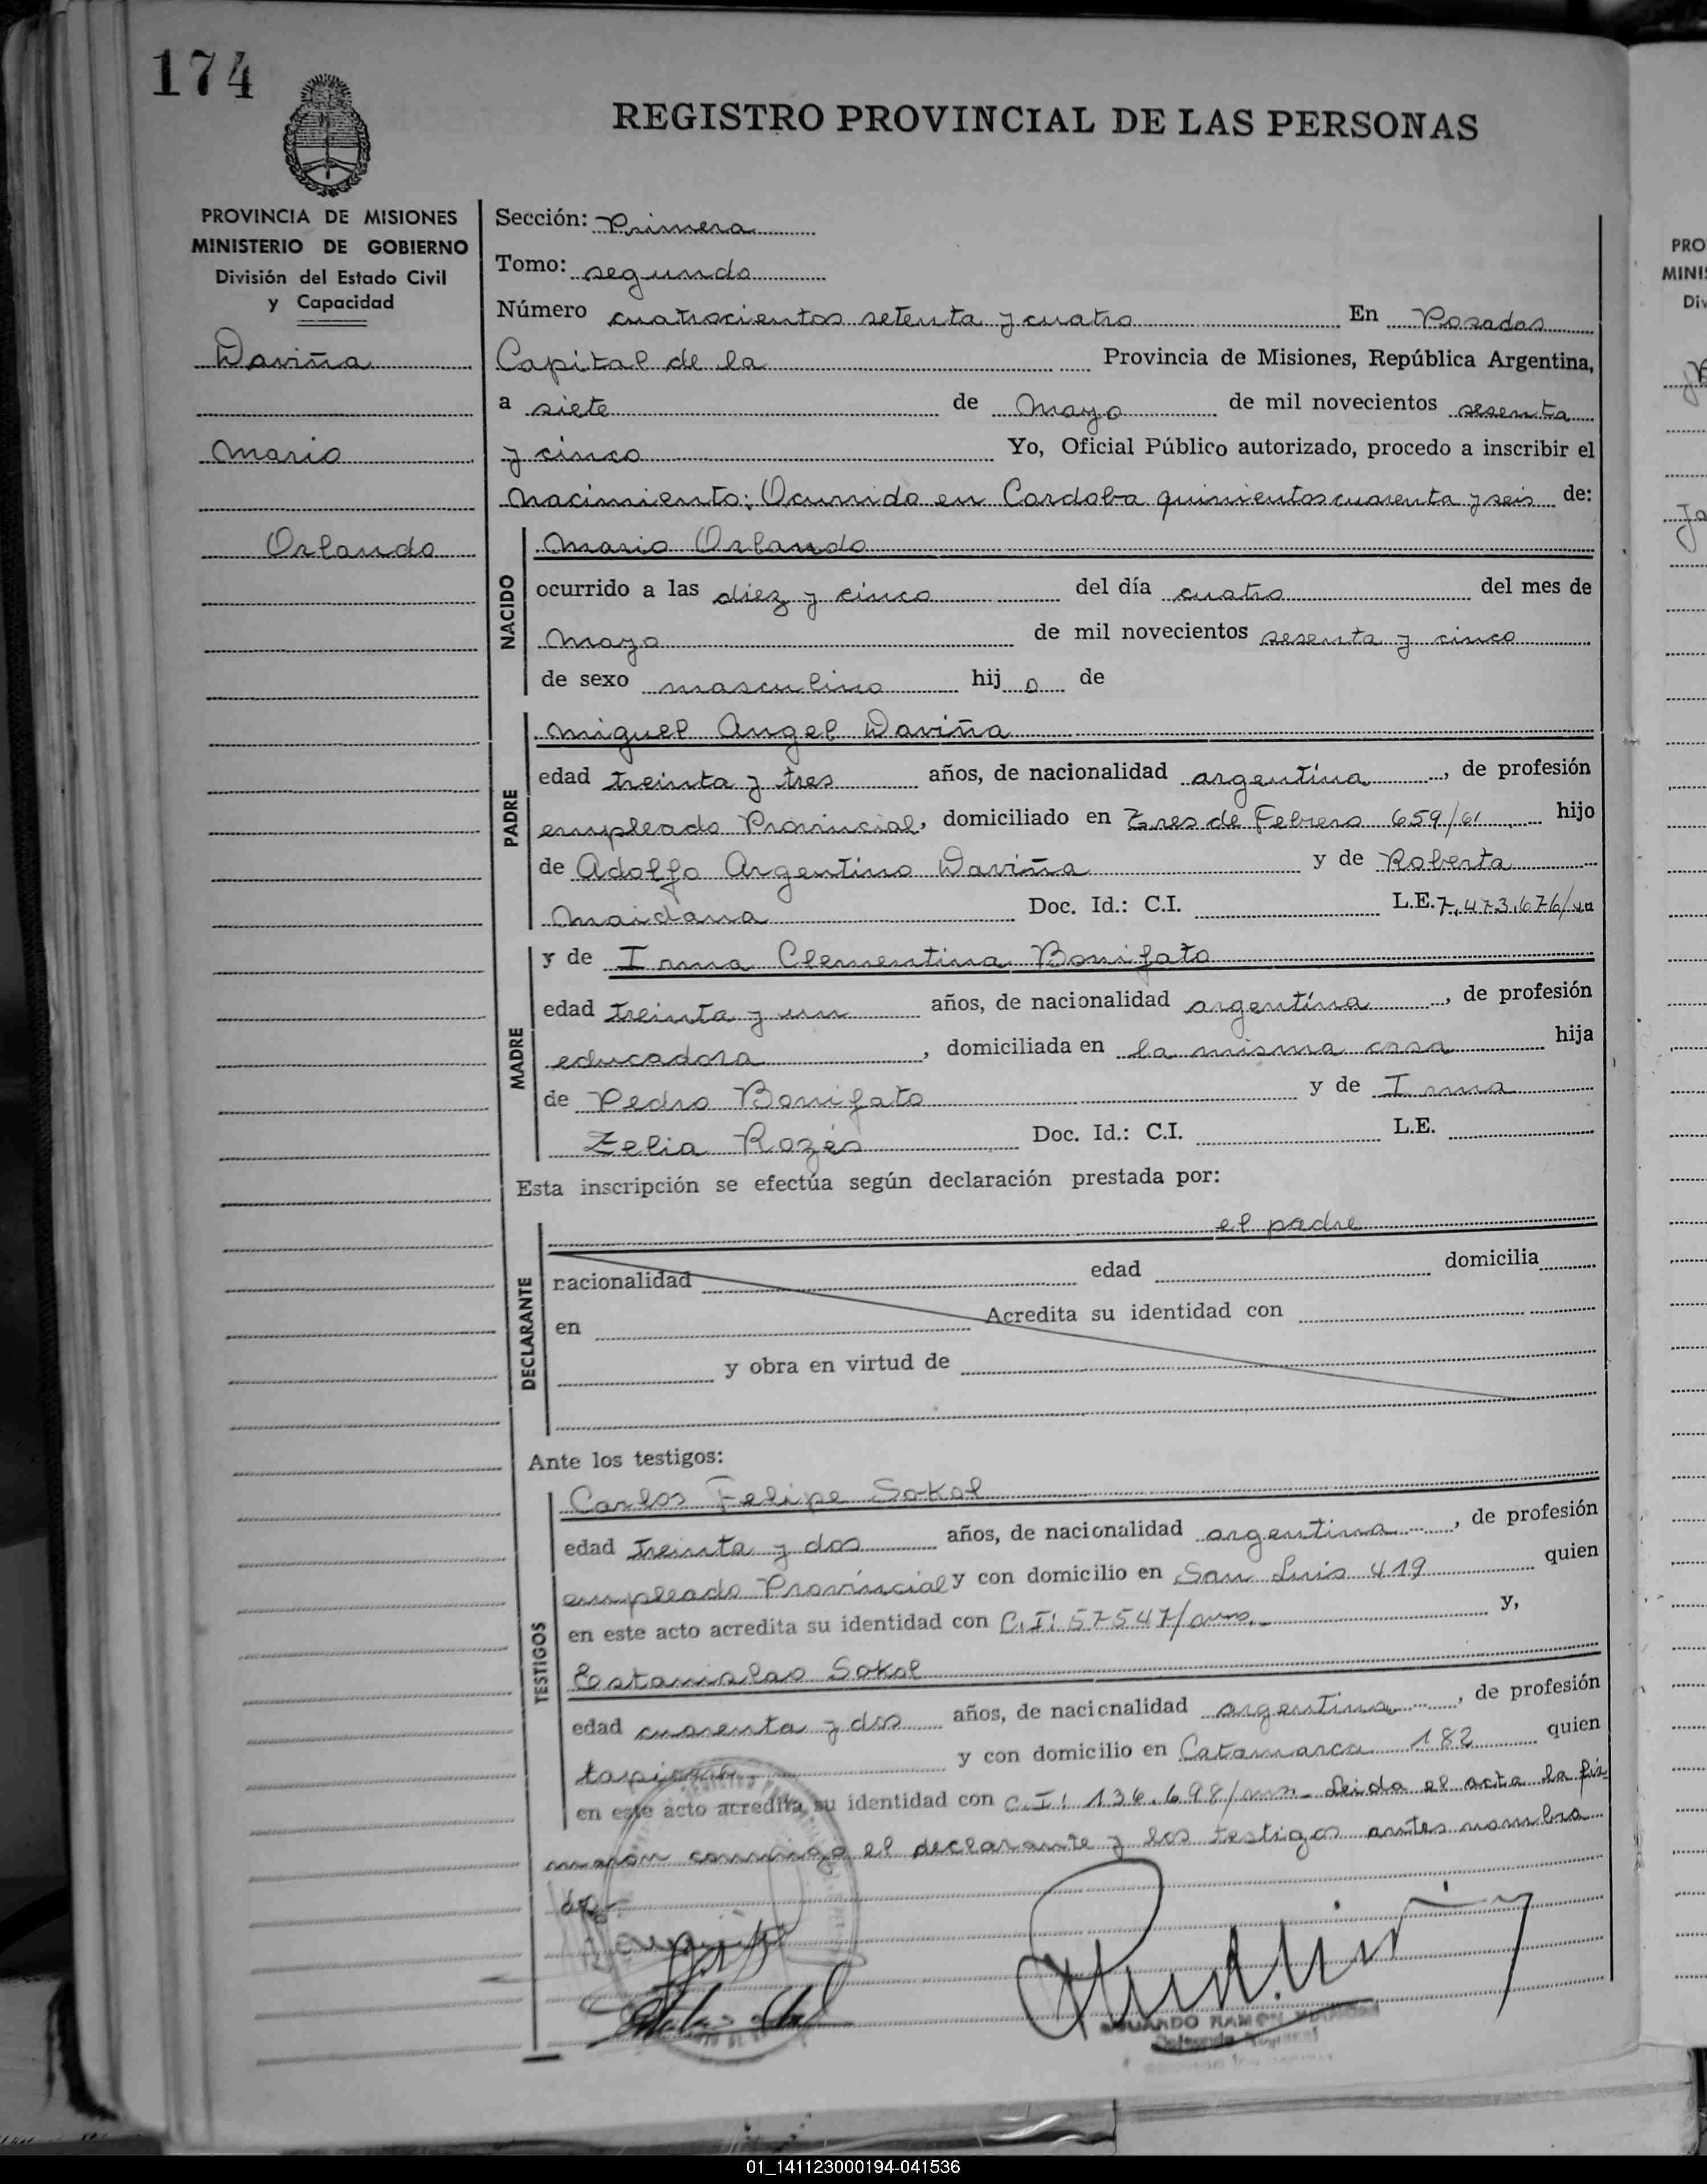 174
REGISTRO PROVINCIAL DE LAS PERSONAS
PROVINCIA DE MISIONES
MINISTERIO DE GOBIERNO
División del Estado Civil
y Capacidad
Daviña
Mario
Orlando
Sección: Primera
Tomo: segundo
Número cuatrocientos setenta y cuatro En Posadas
Capital de la Provincia de Misiones, República Argentina,
a siete de Mayo de mil novecientos sesenta
y cinco Yo, Oficial Público autorizado, procedo a inscribir el
nacimiento: Ocurrido en Cordoba quinientos cuarenta y seis de:
NACIDO
Mario Orlando
ocurrido a las diez y cinco del día cuatro del mes de
Mayo de mil novecientos sesenta y cinco
de sexo masculino hij o de
PADRE
Miguel Angel Daviña
edad treinta y tres años, de nacionalidad argentina, de profesión
empleado Provincial, domiciliado en Tres de Febrero 659/61 hijo
de Adolfo Argentino Daviña y de Roberta
Maidana Doc. Id.: C.I. L.E. 7.473.676/
MADRE
y de Irma Clementina Bonifato
edad treinta y un años, de nacionalidad argentina, de profesión
educadora, domiciliada en la misma casa hija
de Pedro Bonifato y de Irma
Zelia Rozés Doc. Id.: C.I. L.E.
Esta inscripción se efectúa según declaración prestada por:
el padre
DECLARANTE
nacionalidad edad domicilia
en Acredita su identidad con
y obra en virtud de
Ante los testigos:
TESTIGOS
Carlos Felipe Sokol
edad treinta y dos años, de nacionalidad argentina, de profesión
empleado Provincial y con domicilio en San Luis 419 quien
en este acto acredita su identidad con C.I: 57547/ y,
Estanislao Sokol
edad cuarenta y dos años, de nacionalidad argentina, de profesión
y con domicilio en Catamarca 182 quien
en este acto acredita su identidad con C.I: 136.698/ Leida el acta la fir
maron conmigo el declarante y los testigos antes nombra
dos
RAMON
PRO
MINIS
Div
01_141123000194-041536